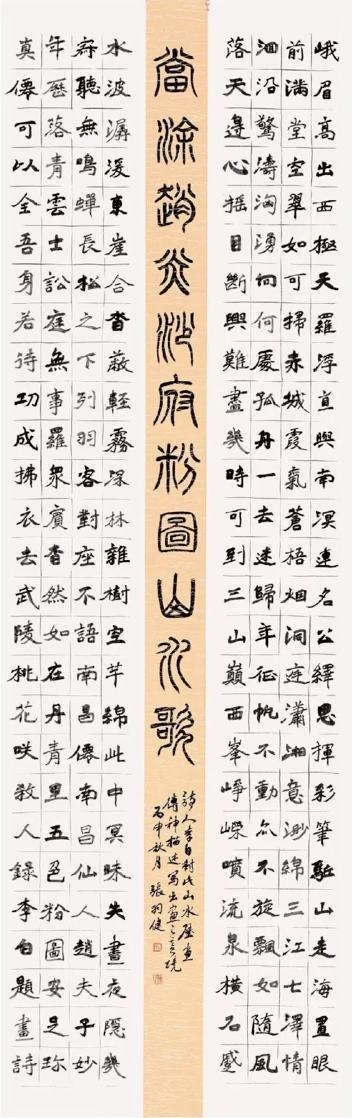 峨眉高出西極天羅浮直與南溟連名公繹思揮彩筆驅山走海置眼
前滿堂空翠如可掃赤城霞氣蒼梧烟洞庭瀟湘意渺綿三江七澤情
洄沿驚濤洶湧向何處孤舟一去迷歸年征帆不動亦不旋飄如隨風
落天邊心摇目斷興難盡幾時可到三山巔西峯崢嶸噴流泉橫石蹙
當涂趙炎少府粉圖山水歌
詩人李白對此山水壁畫
傳神描述寫出畫之意境
丙申秋月 張羽健
水波潺湲東崖合沓蔽輕霧深林雜樹空芊綿此中冥昧失晝夜隱幾
寂聽無鳴蟬長松之下列羽客對座不語南昌僊南昌仙人趙夫子妙
年歷落青雲士訟庭無事羅衆賓杳然如在丹青里五色粉圖安足珍
真僊可以全吾身若待功成拂衣去武陵桃花咲殺人錄李白題畫詩